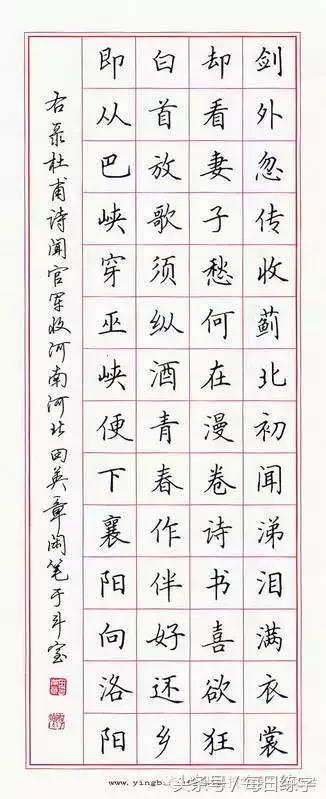 剑外忽传收蓟北初闻涕泪满衣裳
却看妻子愁何在漫卷诗书喜欲狂
白首放歌须纵酒青春作伴好还乡
即从巴峡穿巫峡便下襄阳向洛阳
右录杜甫诗闻官军收河南河北田英章闲笔于斗室
头条号 / 每日练字